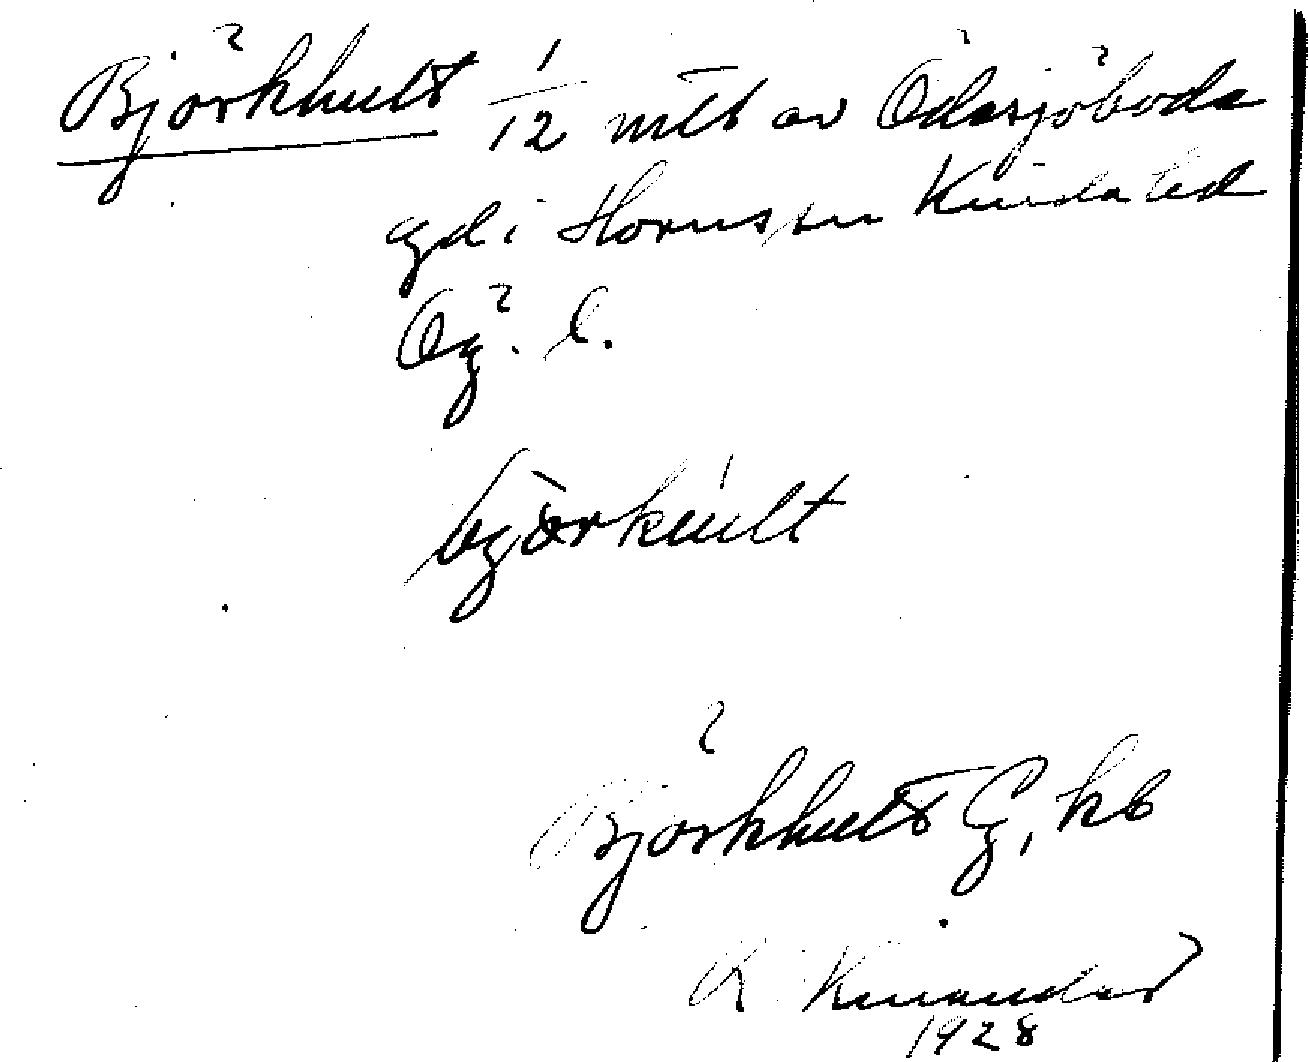 Björkhult 1/12 mtl av Ödesjöboda
gd i Horns sn Kinda hd
Ög. l.
bjö̀rkúlt
Björkhult G, kb
R. Kinander
1928